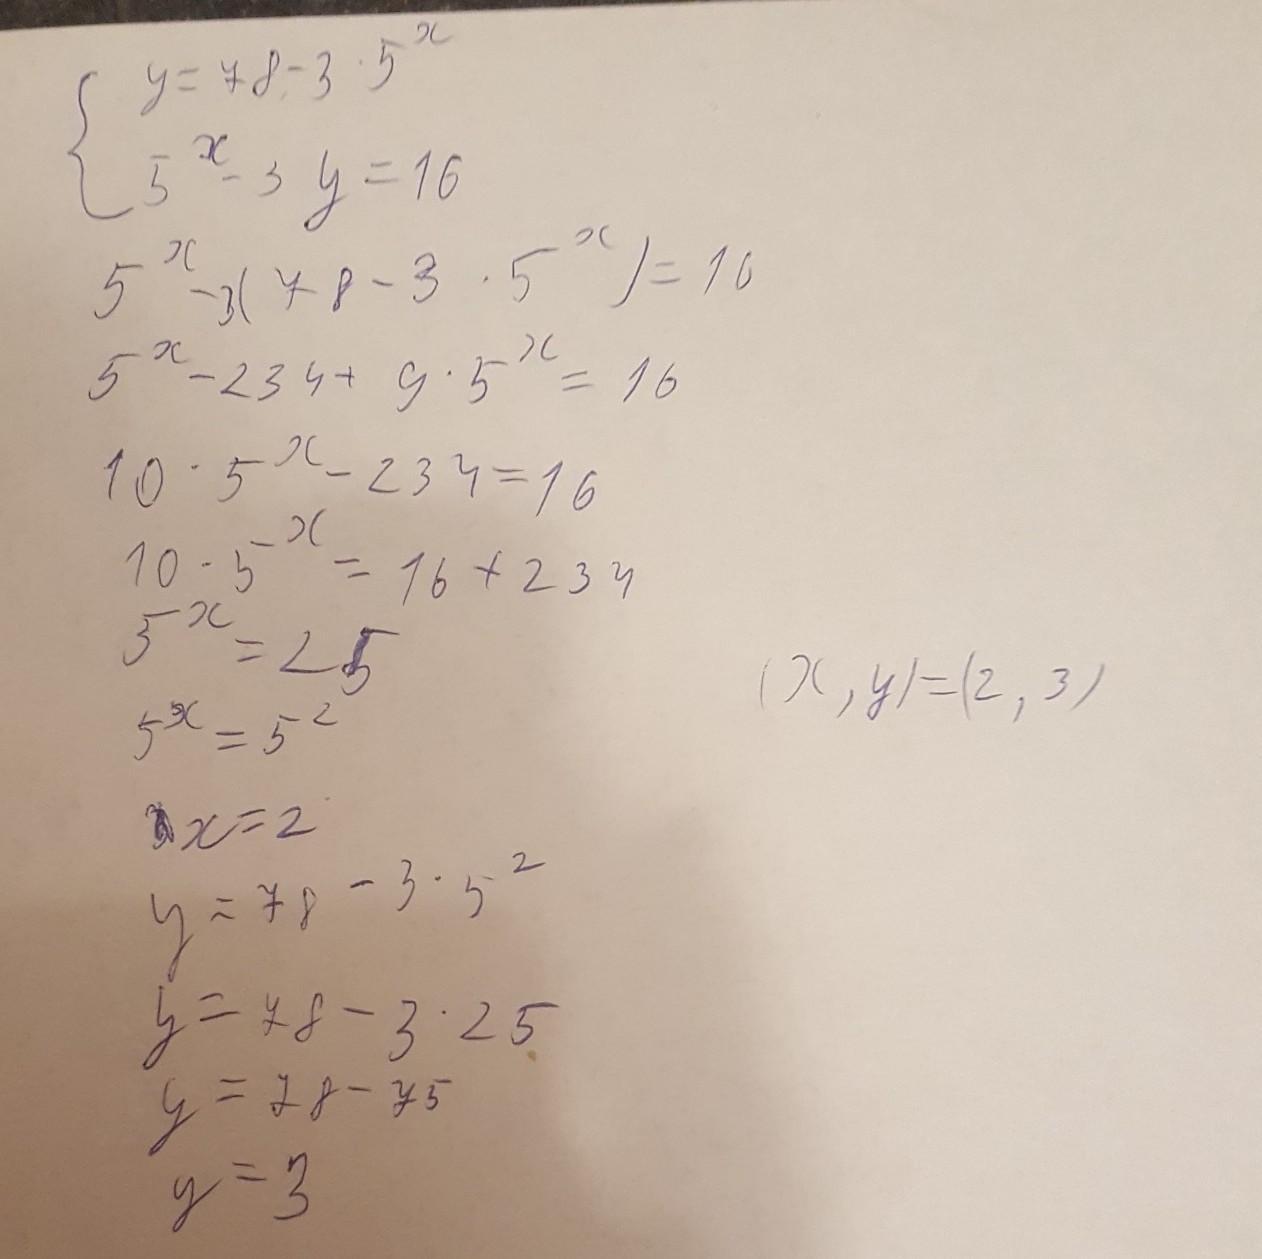 y=78-3·5^x
5^x-3y=16
5^x-3(78-3·5^x)=16
5^x-234+9·5^x=16
10·5^x-234=16
10·5^x=16+234
5^x=25
5^x=5^2
x=2
y=78-3·5^2
y=78-3·25
y=78-75
y=3
(x,y)=(2,3)